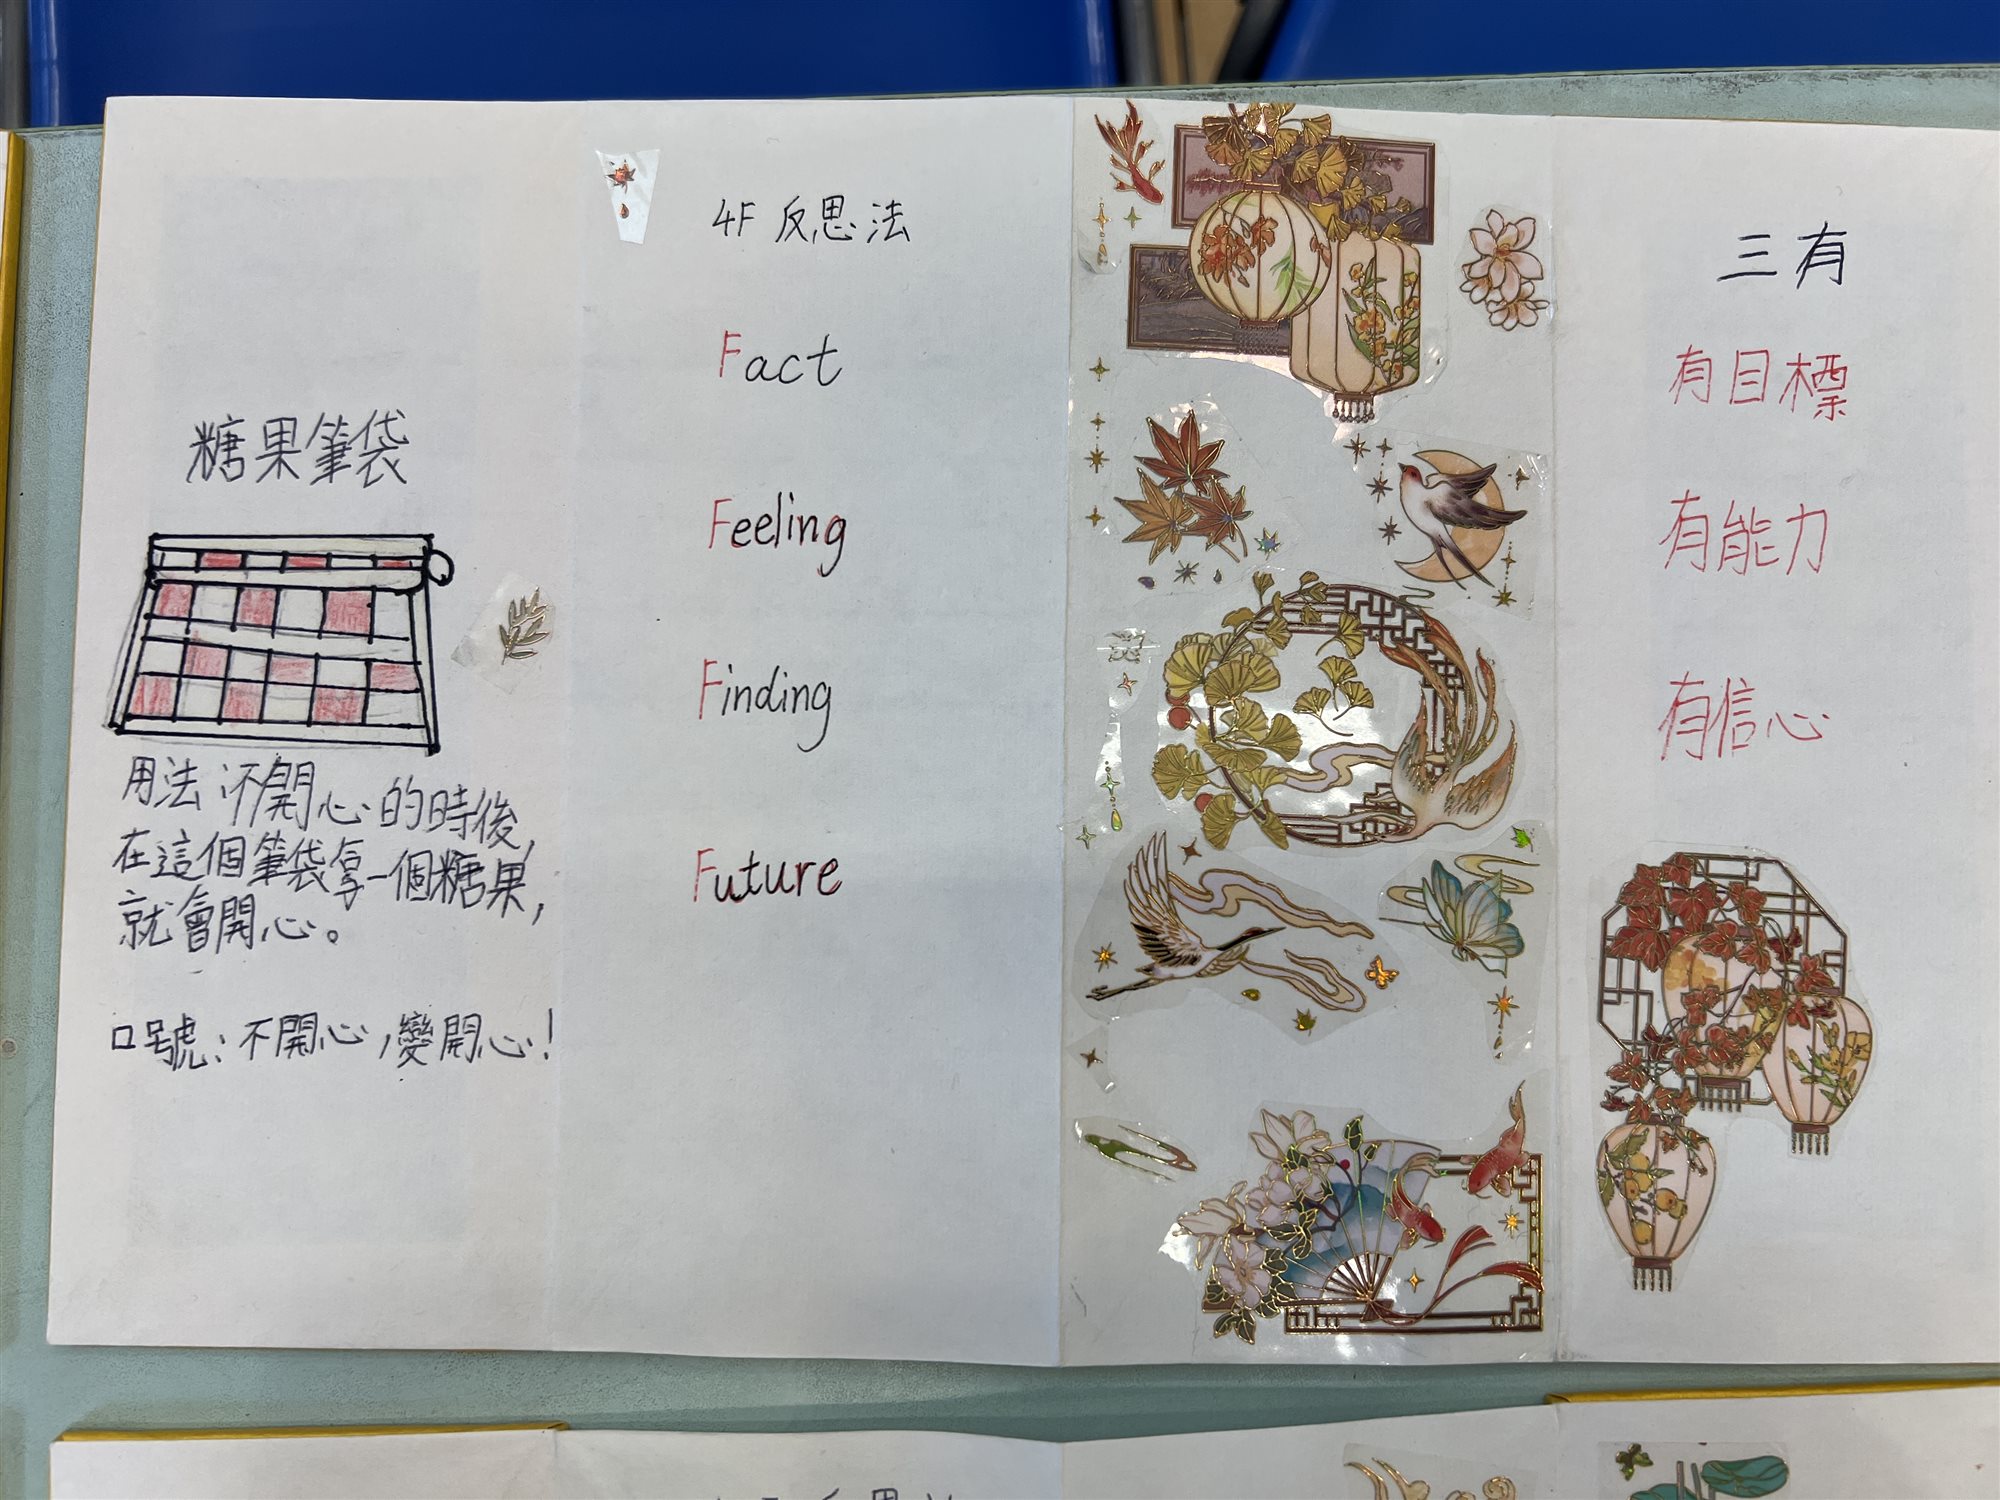 糖果筆袋
用法:不開心的時後,
在這個筆袋拿一個糖果,
就會開心。
口號:不開心,變開心!
4F 反思法
Fact
Feeling
Finding
Future
三有
有目標
有能力
有信心